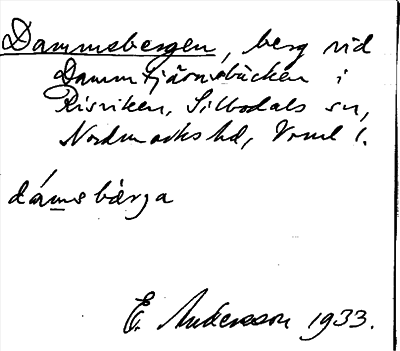 Dammsbergen, berg vid
Dammtjärnsbäcken i
Risviken, Silbodals sn,
Nordmarks hd, Vrml l.
dámsbärja
E. Andersson 1933.